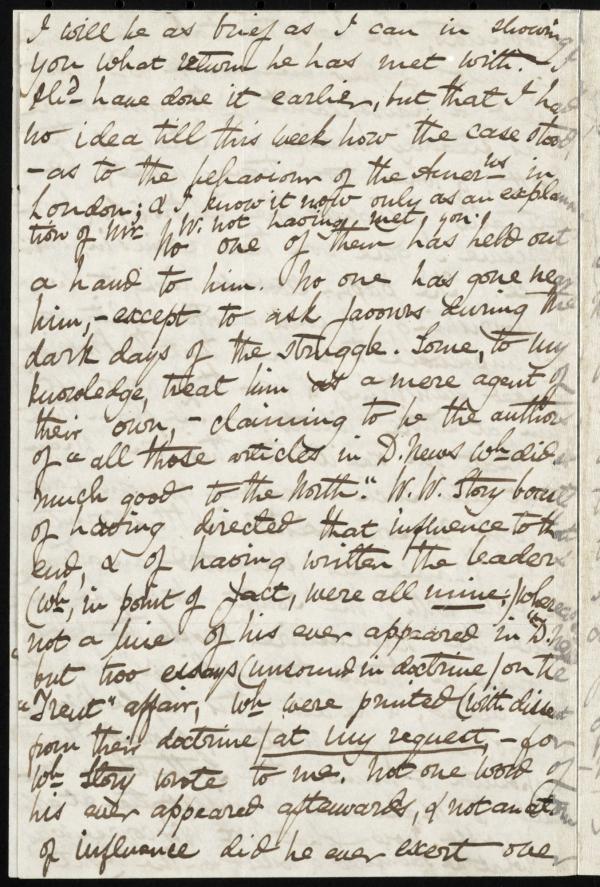 I will be as brief as I can in showing
you what return he has met with. I
shd- have done it earlier, but that I had
no idea till this week how the case stood,
- as to the behaviour of the Amerns in
London; & I know it now only as an explana-
tion of Mr W. not having met you.
No one of them has held out
a hand to him. No one has gone near
him, - except to ask favours during the
dark days of the struggle. Some, to my
knowledge, treat him as a mere agent of
their own, - claiming to be the authors
of "all those articles in D. News wh- did
much good to the North." W. W. Story boasts
of having directed that influence to that
end, & of having written the leaders
(wh, in point of fact, were all mine;) whereas
not a line of his ever appeared in "D. News
but two essays (unsound in doctrine) on the
"Trent" affair, wh were printed (with dissent
from their doctrine) at my request, - for
wh Story wrote to me. Not one word of
his ever appeared afterwards, & not an atom
of influence did he ever exert over